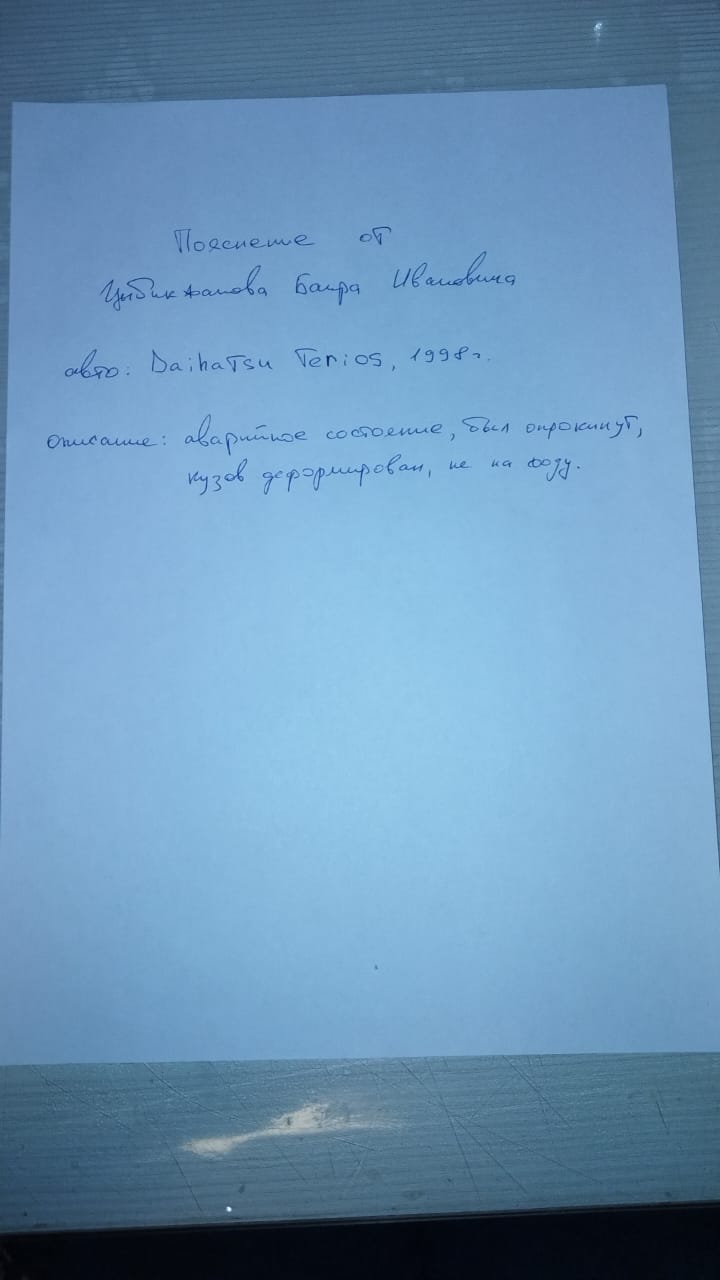 Пояснение от
Цыбикжапова Баира Ивановича
авто: Daihatsu Terios, 1998г.
Описание: аварийное состоение, был опрокинут,
кузов деформирован, не на ходу.